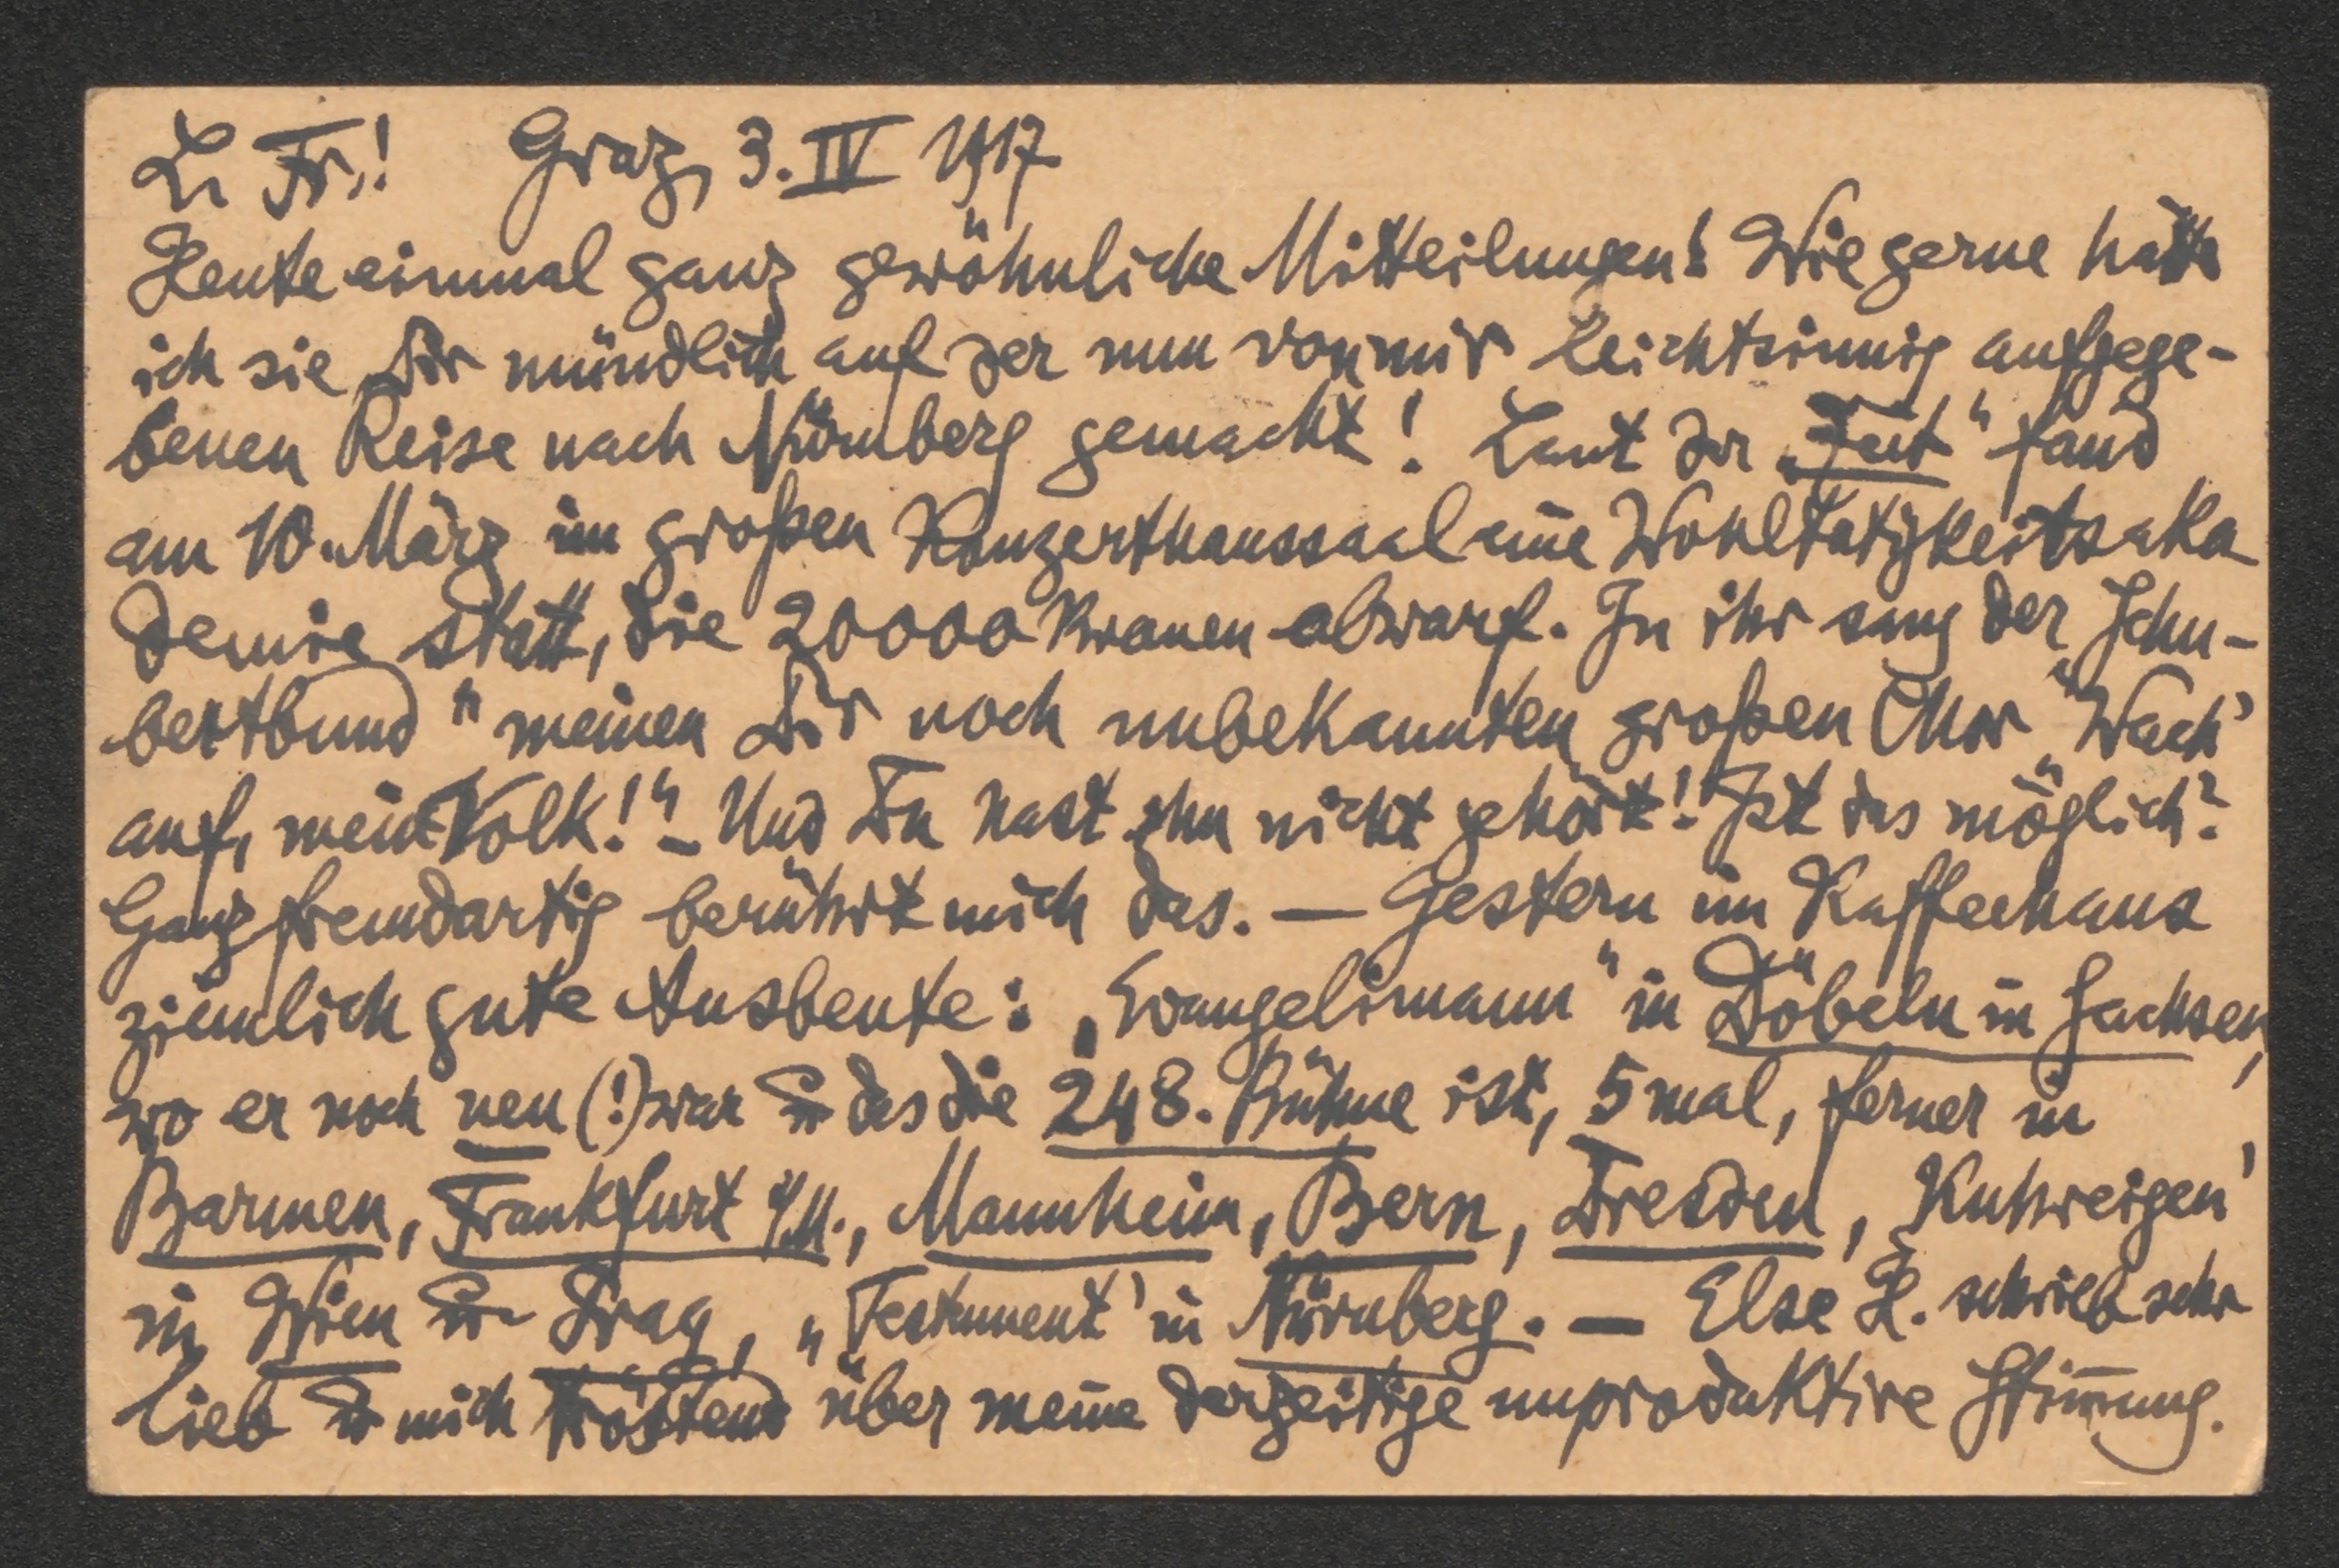 L. Fr.! Graz, 3. IV 1917
Heute einmal ganz gewöhnliche Mitteilungen! Wie gerne hätte
ich sie Dir mündlich auf der nun von mir leichtsinnig aufgege-
benen Reise nach Nürnberg gemacht! Laut der „Zeit" fand
am 10. März im großen Konzerthaussaal eine Wohltätigkeitsaka
demie statt, die 20000 Kronen abwarf. In ihr sang der Schu-
bertbund" meinen Dir noch unbekannten großen Chor „Wach'
auf, mein Volk!" – Und Du hast ihn nicht gehört! Ist das möglich?
Ganz fremdartig berührt mich das. — Gestern im Kaffeehaus
ziemlich gute Ausbeute: „Evangelimann" in Döbeln in Sachsen,
wo er noch neu (!) war u das die 248. Bühne ist, 5 mal, ferner in
Barmen, Frankfurt a/M., Mannheim, Bern, Dresden, „Kuhreigen'
in Wien u Prag, „Testament' in Nürnberg. — Else H. schrieb sehr
lieb u mich tröstend über meine derzeitige unproduktive Stim̅ung.